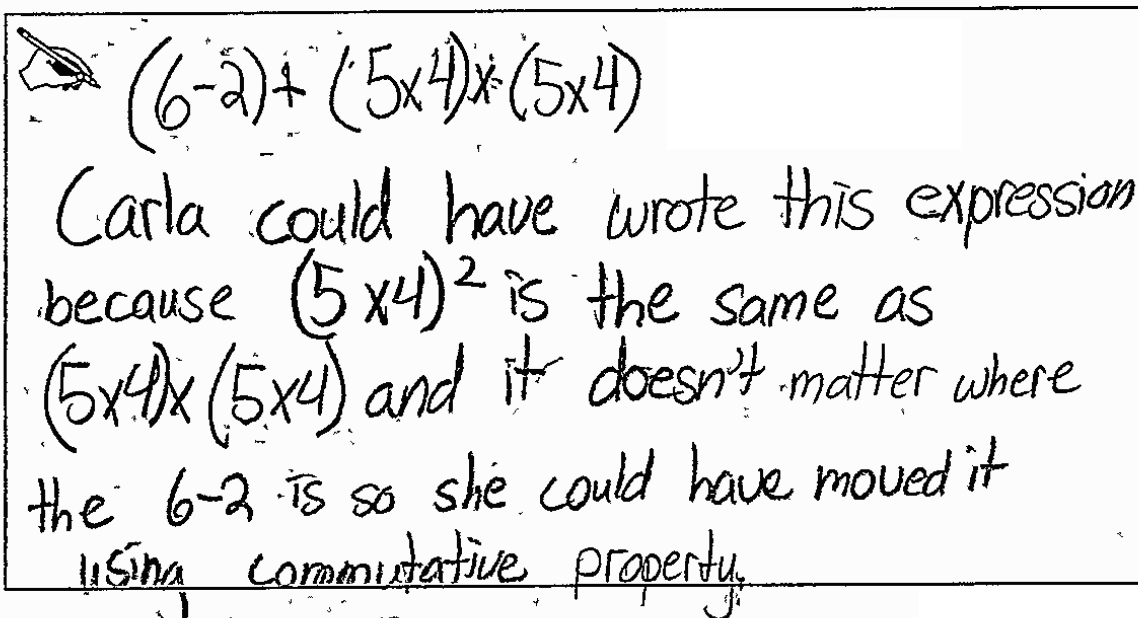 (6-2)+(5x4)x(5x4)
Carla could have wrote this expression
because (5x4)² is the same as
(5x4)x(5x4) and it doesn't matter where
the 6-2 is so she could have moved it
using commutative property.